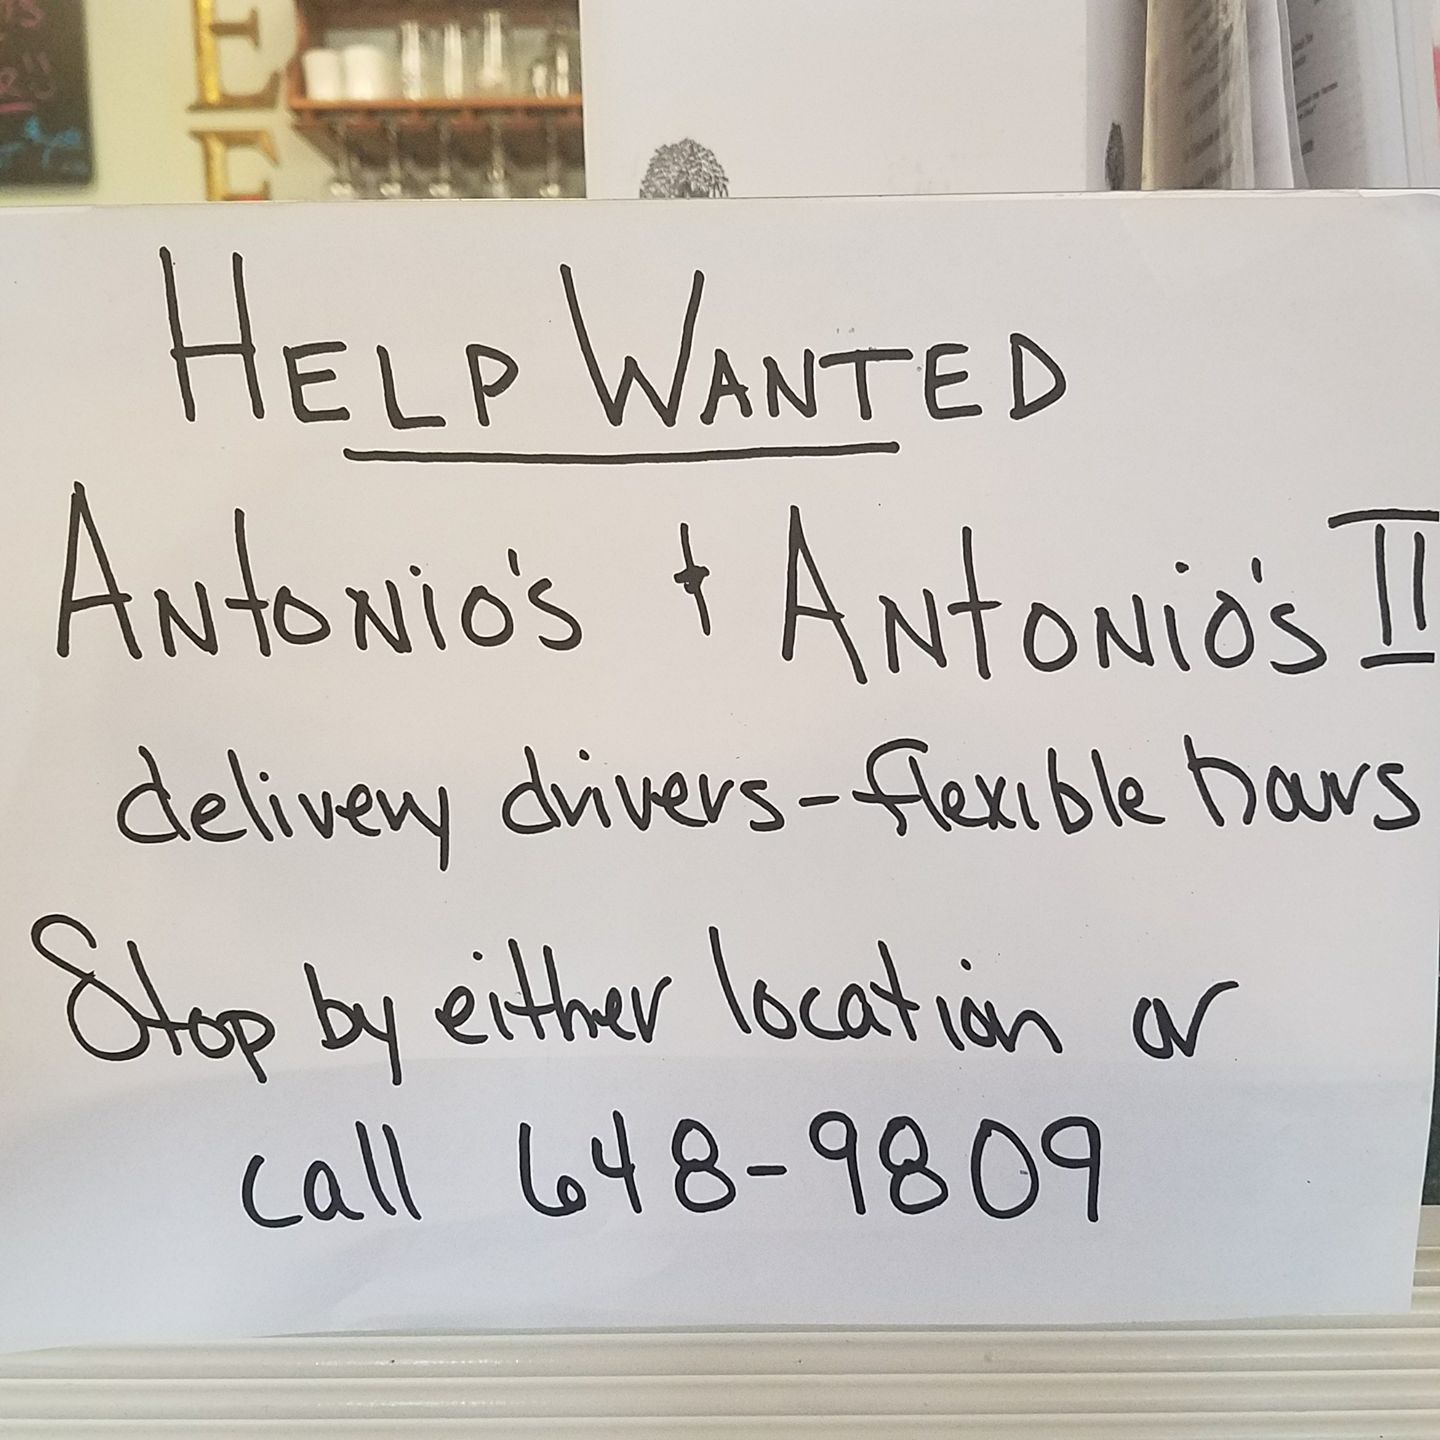 E
E
HELP WANTED
ANtONiO's + ANtONiO's II
delivery drivers-flexible hours
Stop by either location or
call 648-9809